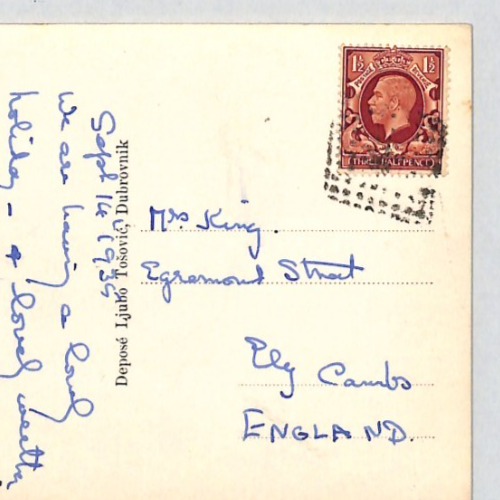 Sept 14 1935
We are having a lovely
holiday - & lovely weather
Deposé Ljubo Tošović, Dubrovnik
1½ 1½
POSTAGE REVENUE
THREE HALFPENCE
Mrs King.
Egremont Street
Ely Cambs
ENGLAND.